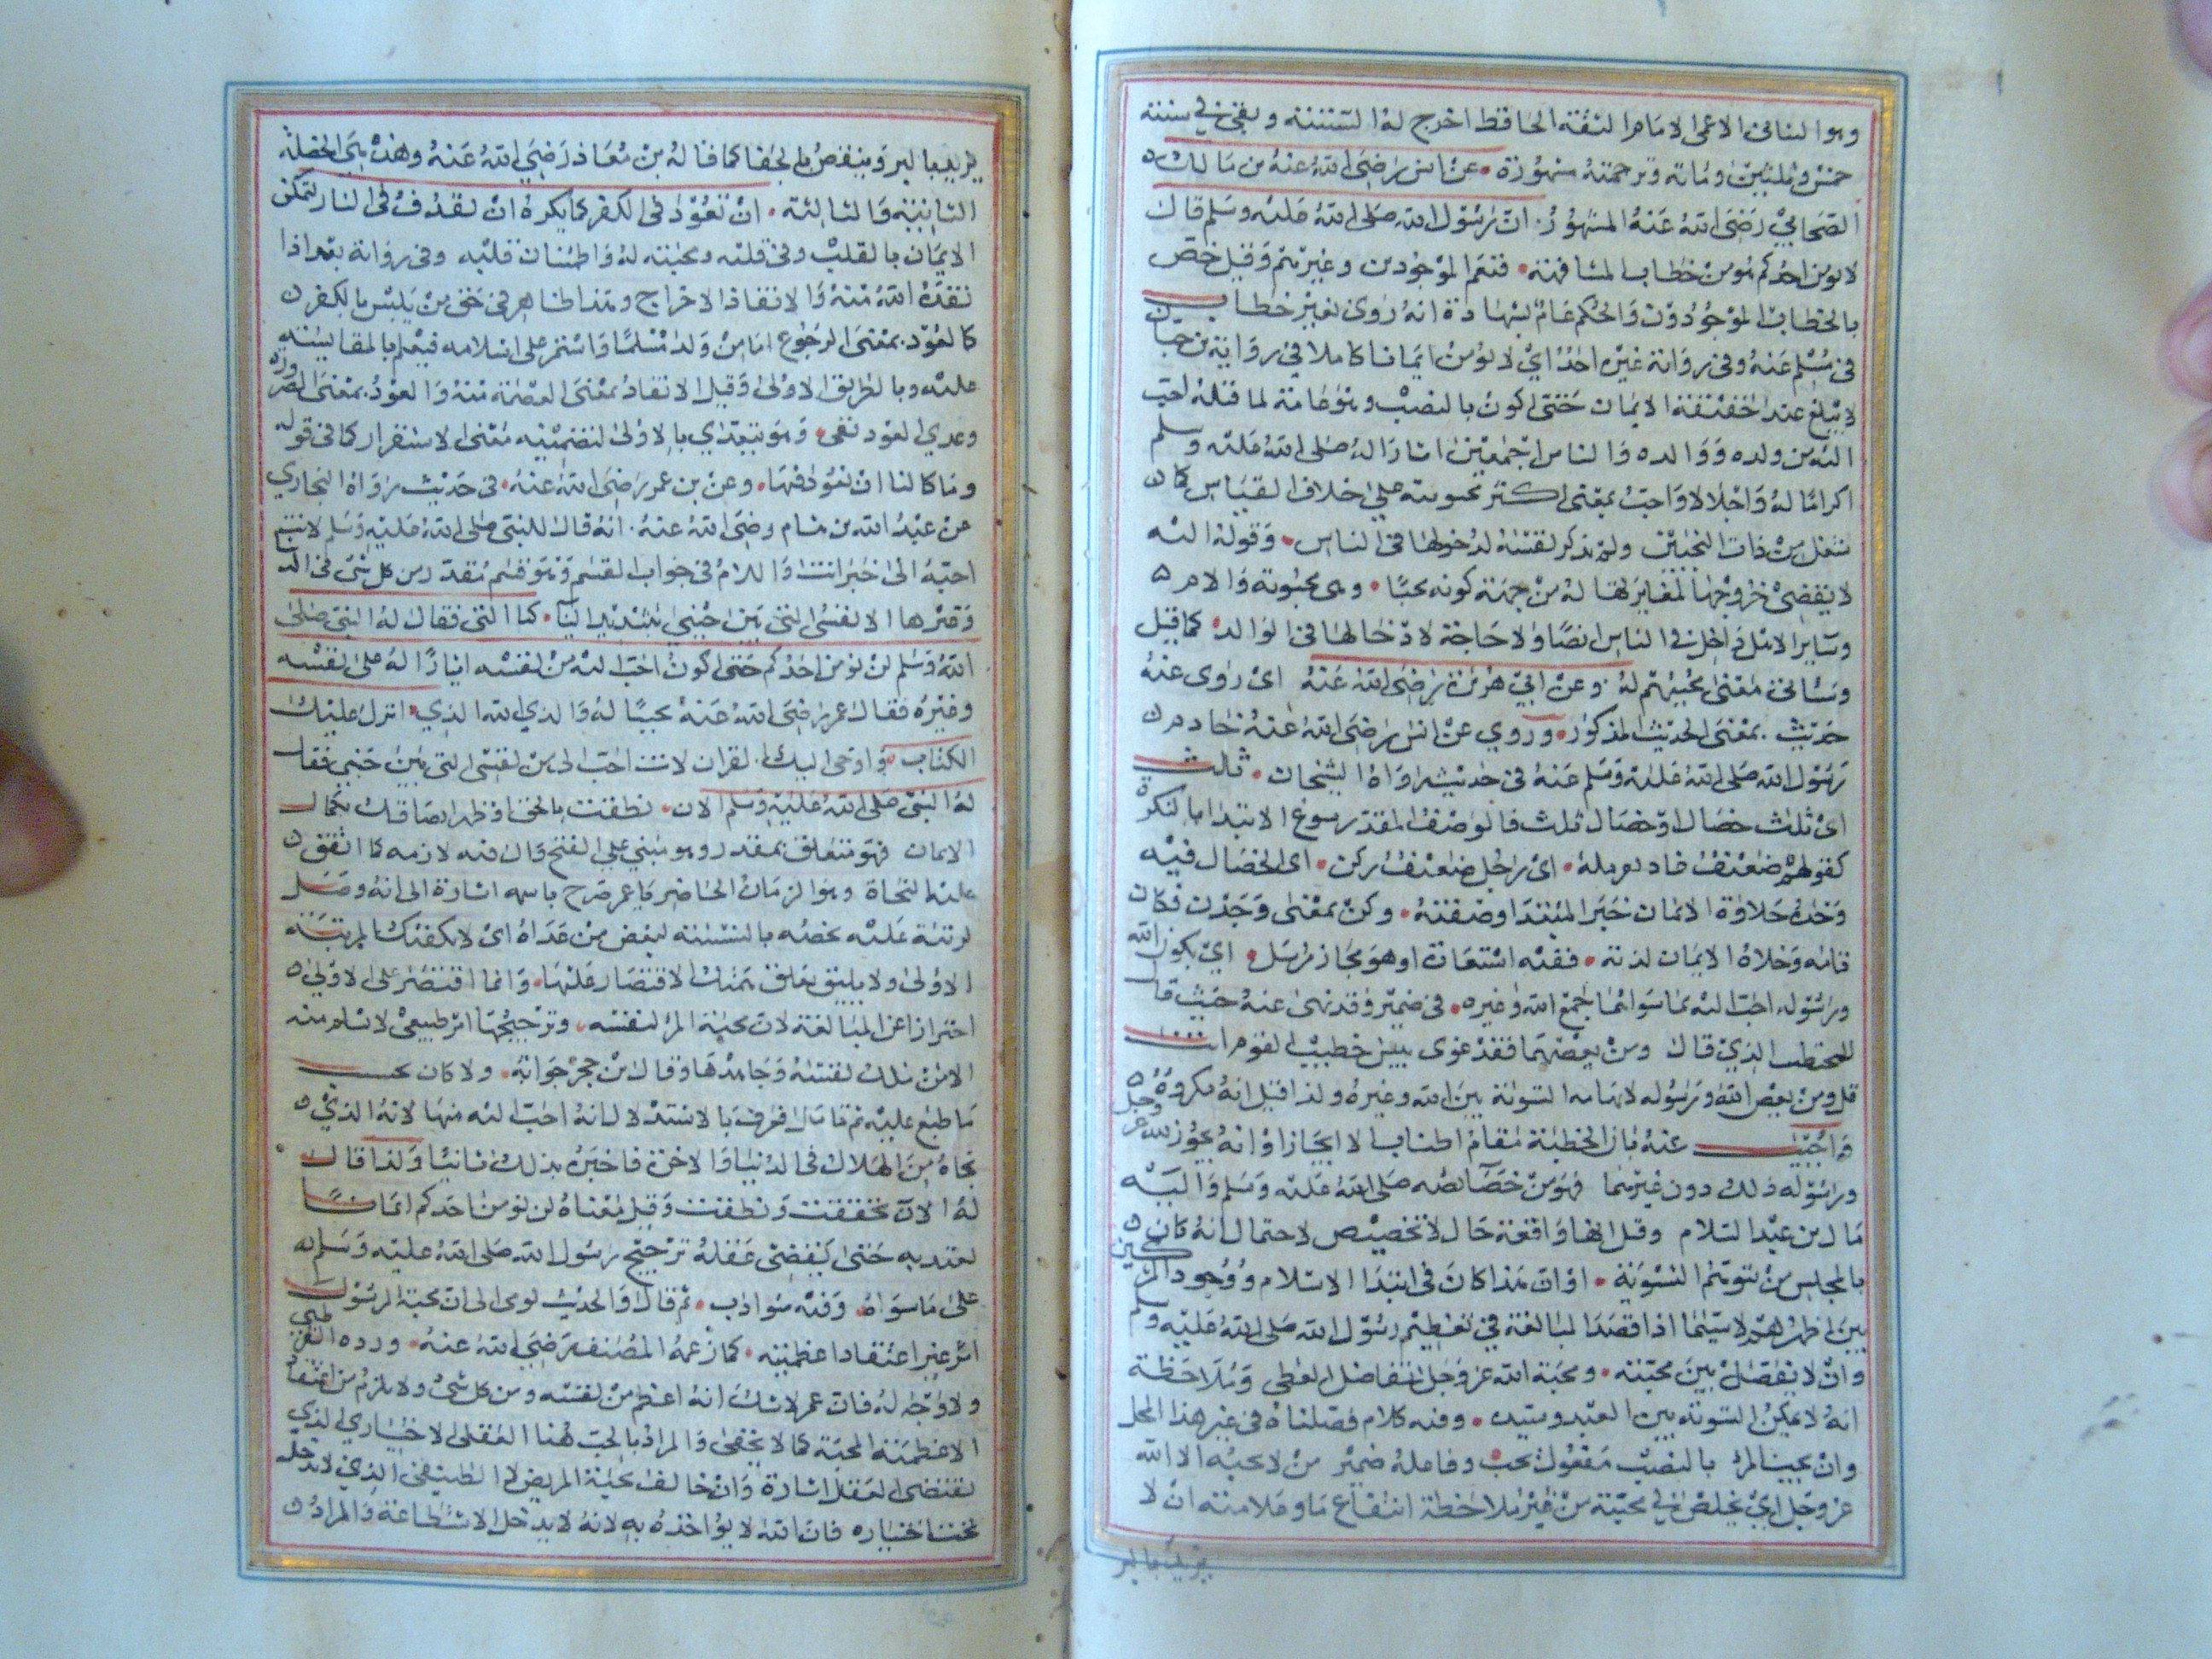 وهو التابعي الاعمى الامام الثقة الحافظ اخرج له الستة وتوفى في سنة
خمس وثلثين ومائة وترجمته مشهورة عن انس رضى الله عنه من مالك
الصحابي رضى الله عنه المشهور ان رسول الله صلى الله عليه وسلم قال
لا يومن احدكم هو من خطاب المشافهة فتعم الموجودين وغيرهم وقيل خص
بالخطاب الموجودون والحكم عام بشهادة انه روى بغير خطاب
فى مسلم عنه وفى رواية غيره احد اي لا يومن ايمانا كاملا في رواية بن حبان
لا يبلغ عند حقيقة الايمان حتى اكون بالنصب وهو غاية لما قبله احب
اليه من ولده ووالده والناس اجمعين اشار اله صلى الله عليه وسلم
اكراما له واجلالا واحب بمعنى اكثر محبوبية على خلاف القياس كان
ولم يذكر نفسه لدخولها فى الناس وقوله اليه
لا يقتضى خروجها لمغايرتها له من جهة كونه محبا وهى محبوبة والام
وساير الاهل داخل فى الناس ايضا ولا حاجة لادخالها فى الوالد كما قيل
معنى محبيهم له وعن ابي هريرة رضى الله عنه اى روى عنه
حديث بمعنى الحديث المذكور وروي عن انس رضى الله عنه خادم
رسول الله صلى الله عليه وسلم عنه فى حديث رواه الشيخان ثلث
اى ثلث خصال او خصال ثلث فالوصف المقدر يسوغ الابتدا بالنكرة
كقولهم ضعيف عاذ بقرملة اى رجل ضعيف ركن اى الخصال فيه
وجد حلاوة الايمان خبر المبتدا وصفته وكن بمعنى وجدن فكان
تامه وحلاوة الايمان لذته ففيه استعارة او هو مجاز مرسل اي يكون الله
ورسوله احب اليه مما سواهما جمع الله وغيره فى ضمير وقد نهى عنه حيث قال
للخطيب الذي قال ومن يعصهما فقد غوى بيس خطيب القوم انت
قل ومن يعص الله ورسوله لايهامه التسوية بين الله وغيره ولذا قيل انه مكروه
واجيب عنه بان الخطبة مقام اطناب لا ايجاز او انه يجوز لله عز وجل
ورسوله ذلك دون غيرهما فهو من خصائصه صلى الله عليه وسلم واليه
مال بن عبد السلام وقيل انها واقعة حال لا تخصيص لاحتمال انه كان
بالمجلس من يتوهم التسوية او ان هذا كان فى ابتدا الاسلام ووجود المشركين
بين اظهرهم لاسيما اذا قصد المبالغة في تعظيم رسول الله صلى الله عليه وسلم
وان لا يفصل بين محبته ومحبة الله عز وجل وملاحظة
انه لا يمكن التسوية بين العبد وسيده وفيه كلام فصلناه فى غير هذا المحل
وان يحب المر بالنصب مفعول يحب وفاعله ضمير من لا يحبه الا الله
عز وجل اي يخلص في محبته من غير ملاحظة انتفاع ما وعلامته ان لا
يزيد بالبر
يزيد بالبر وينقص بالجفا كما قاله بن معاذ رضي الله عنه وهذه هى الخصلة
الثانية والثالثة ان يعود فى الكفر كما يكره ان يقذف فى النار لتمكن
الايمان بالقلب وفى قلبه ومحبته له واطمئنان قلبه وفى رواية بعد اذا
نقذه الله منه والانقاذ الاخراج وهذا ظاهر فى حق من تلبس بالكفر
كالعود بمعنى الرجوع اما من ولد مسلما واستمر على اسلامه فيعلم بالمقايسة
عليه وبالطريق الاولى وقيل الانقاذ بمعنى العصمة منه والعود بمعنى الصيرورة
وعدي العود بفى وهو يتعدي بالى لتضمينه معنى الاستقرار كما فى قوله
وما كان لنا ان نعود فيها وعن بن عمر رضى الله عنه فى حديث رواه البخاري
عن عبد الله بن هشام رضى الله عنه انه قال للنبى صلى الله عليه وسلم لانت
احبه الى خبر انت واللام فى جواب القسم وهو قسم مقدر من كل شى فى الدنيا
وغيرها الا نفسى التى بين جنبي بتشديد اليا كنا التى فقال له النبى صلى
الله وسلم لن يومن احدكم حتى اكون احب اليه من نفسه ايثارا له على نفسه
وغيره فقال عمر رضى الله عنه مجيبا له والذي الله الذي انزل عليك
الكتاب واوحى اليك القران لانت احب الى من نفسى التى بين جنبي فقال
له النبى صلى الله عليه وسلم الان نطقت بالحق وظهر اتصافك بكمال
الايمان فهو متعلق بمقدر وهو مبني على الفتح وال فيه لازمه كما اتفق
عليه النحاة وهو الزمان الحاضر يا عمر صرح باسمه اشارة الى انه وصل
لرتبة علية تخصه بالنسبة لبعض من عداه اى لا يكفيك المرتبة
الاولى ولا يليق بعلو همتك الاقتصار عليها وانما اقتصر على الاولى
احترازا عن المبالغة لان محبة المر لنفسه وترجيحها امر طبيعي لا يسلم منه
الا من ملك نفسه وجاهدها وقال بن حجر جوابه ولا كان بحسب
ما طبع عليه ثم تامل فعرف بالاستدلال انه احب اليه منها لانه الذي
نجاه من الهلاك فى الدنيا والاخرة فاخبره بذلك ثانيا ولذا قال
له الان تحققت ونطقت وقيل معناه لن يومن احدكم ايمانا
يعتد به حتى يقتضى عقله ترجيح رسول الله صلى الله عليه وسلم
على ما سواه وفيه سو ادب ثم قال والحديث يومى الى ان محبة الرسول
امر غير اعتقاد اعظميته كما زعمه المصنف رضي الله عنه ورده القرطبى
ولا وجه له فان عمر لا شك انه اعظم من نفسه ومن كل شى ولا يلزم من اعتقاد
الاعظمية المحبة كما لا يخفى والمراد بالحب هنا العقلى الاختياري الذي
يقتضى العقل ايثاره وان خالف كمحبة المريض لا الطبيعى الذي لا يدخل
تحت اختياره فان الله لا يؤاخذه به لانه لا يدخل الاستطاعة والمراد